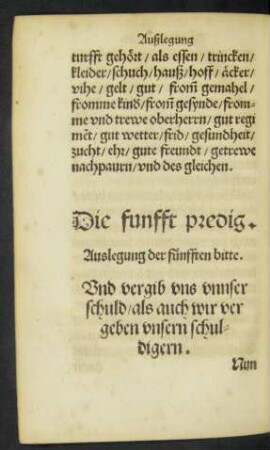 Außlegung
turfft gehört / als essen / trincken /
kleider / schuch / hauß / hoff / äcker /
vihe / gelt / gut / from̃ gemahel /
fromme kind / from̃ gesynde / from-
me vnd trewe oberherrn / gut regi
mẽt / gut wetter / frid / gesundheit /
zucht / ehr / gute freundt / getrewe
nachpaurn / vnd des gleichen.
Die funfft predig.
Auslegung der fünfften bitte.
Vnd vergib vns vnnser
schuld / als auch wir ver
geben vnsern schul-
digern.
Nun